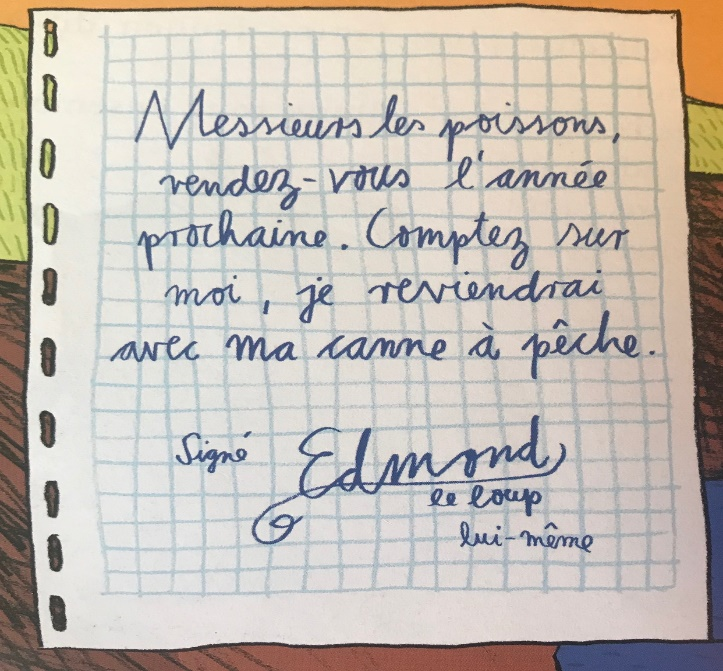 Messieurs les poissons,
rendez-vous l'année
prochaine. Comptez sur
moi, je reviendrai
avec ma canne à pêche.
Signé Edmond
le loup
lui-même